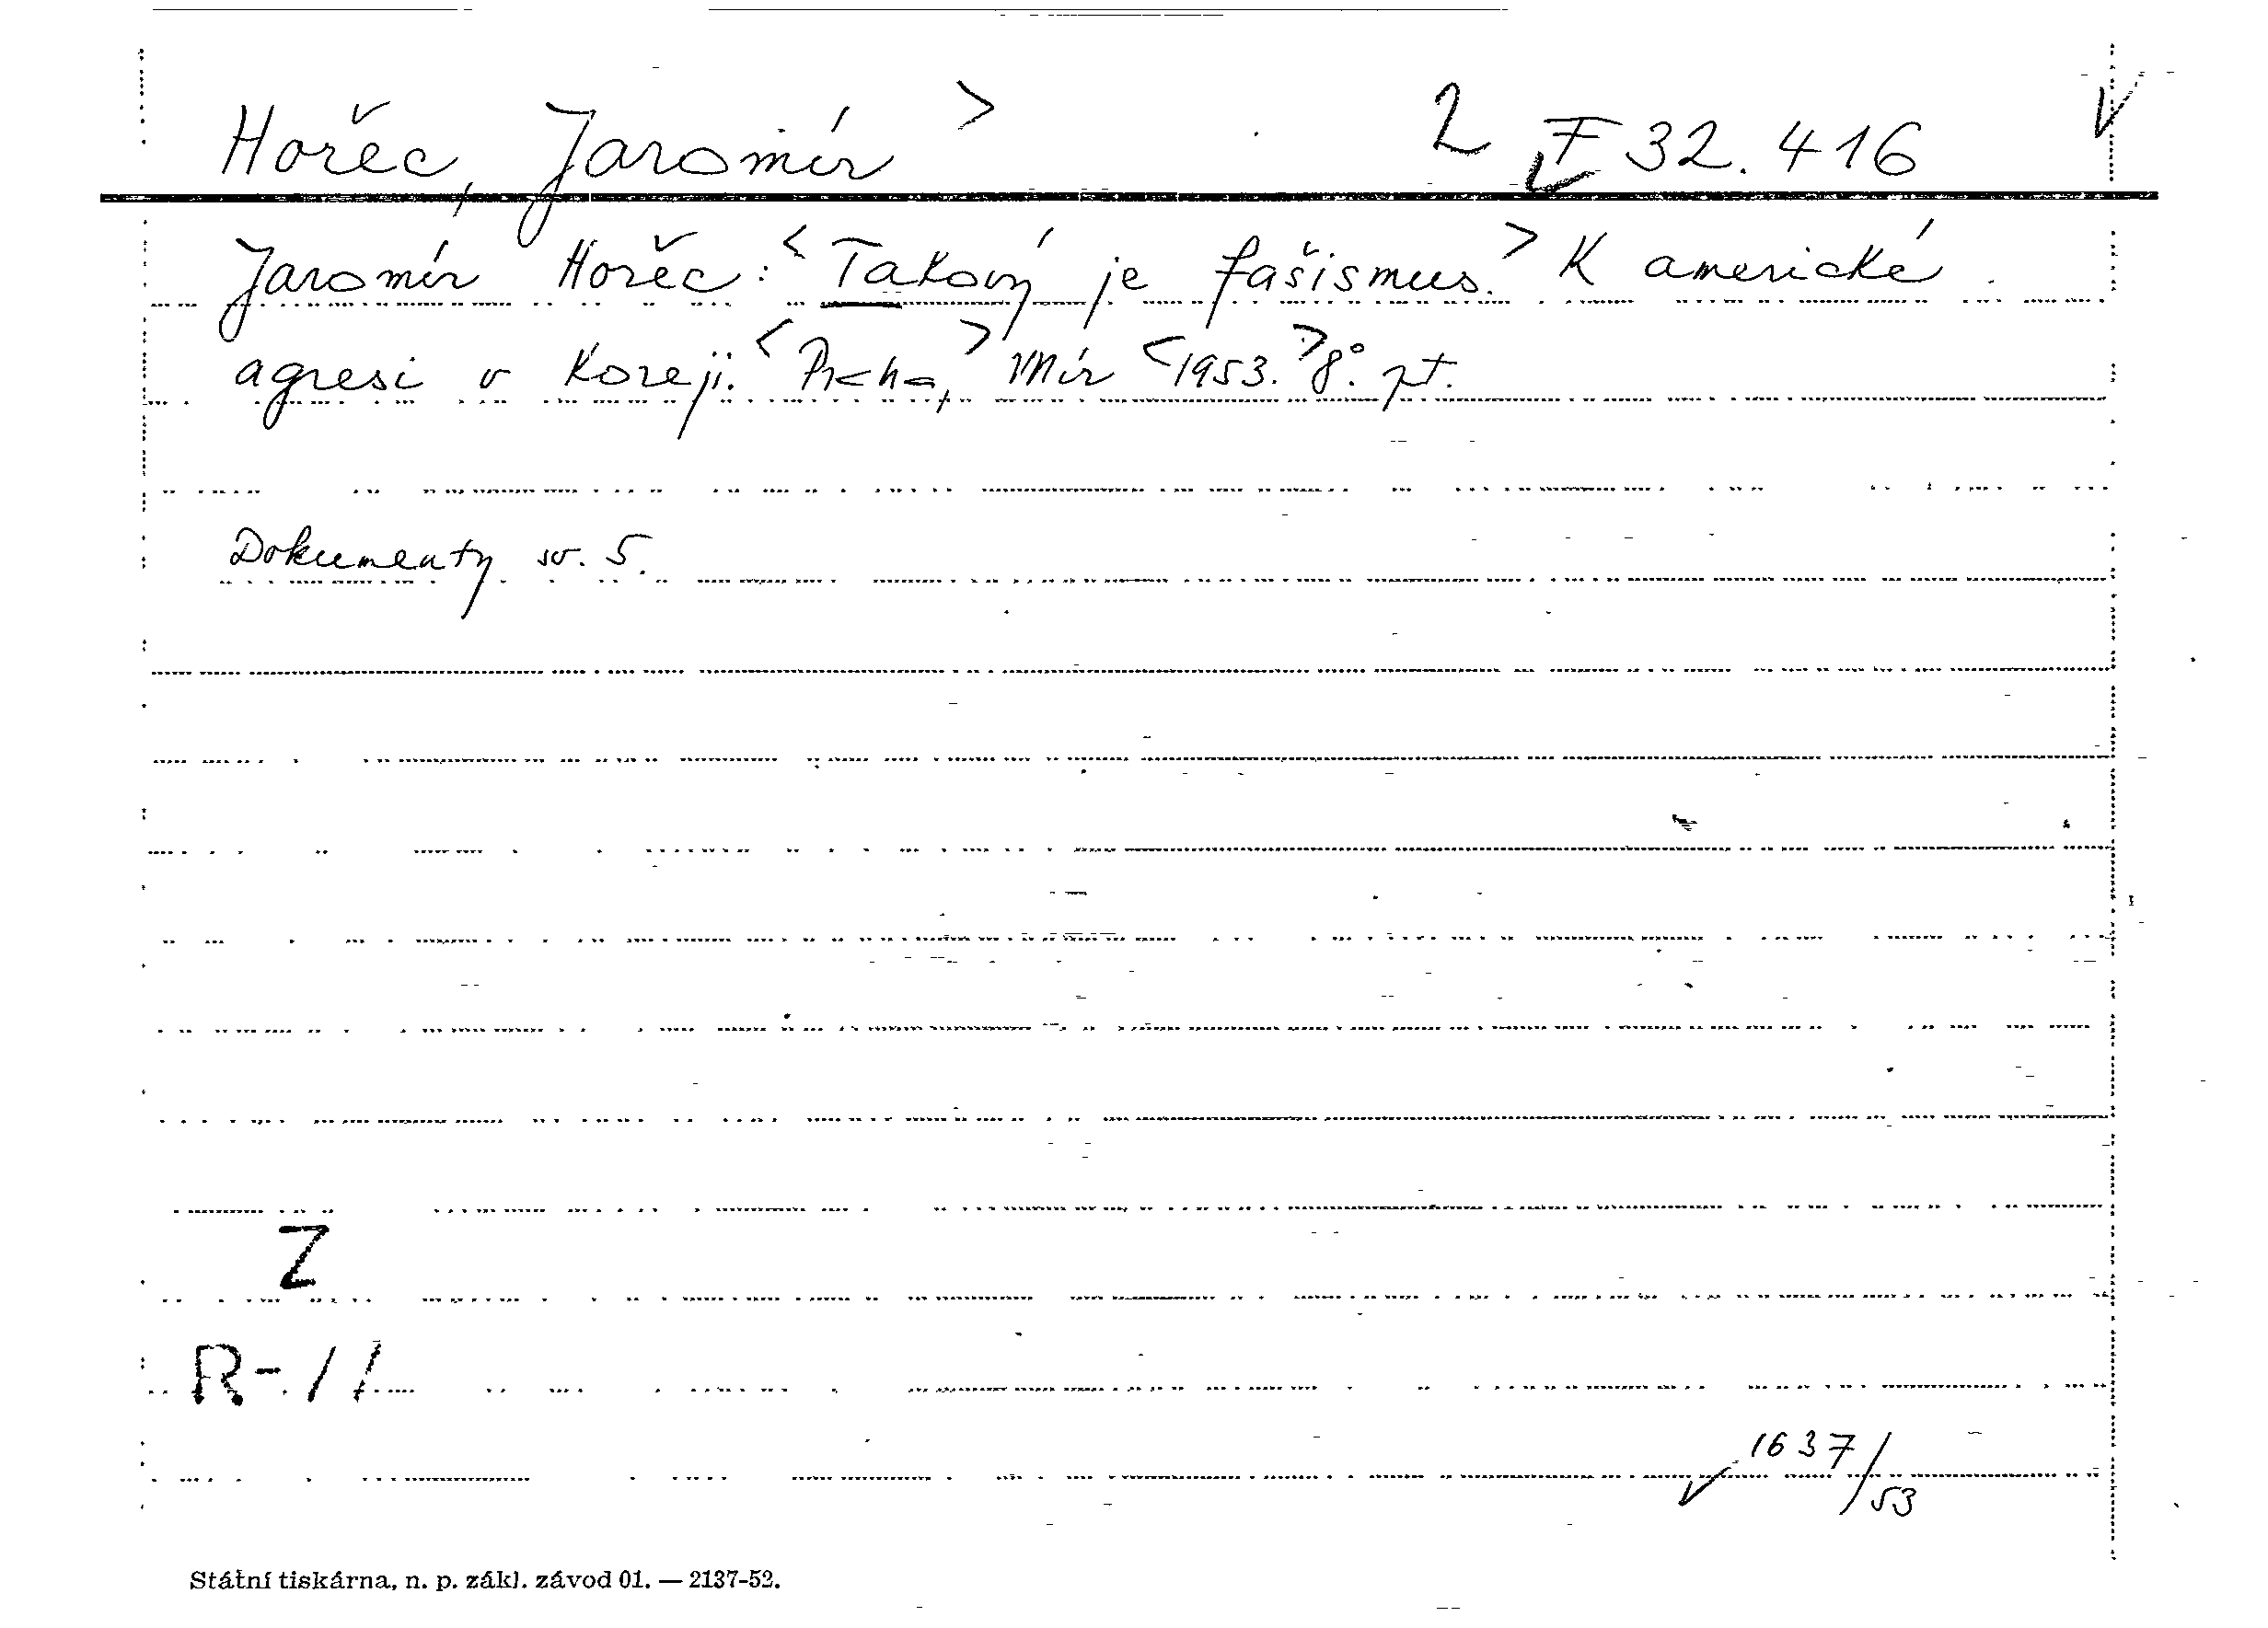 Hořec, Jaromír > 2 F 32.416
Jaromír Hořec: <Takový je fašismus.> K americké
agresi v Koreji. <Praha,> Mír <1953.> 8°. pt.
Dokumenty sv. 5.
Z
R-11
1637/53
Státní tiskárna, n. p. zákl. závod 01. — 2137-52.